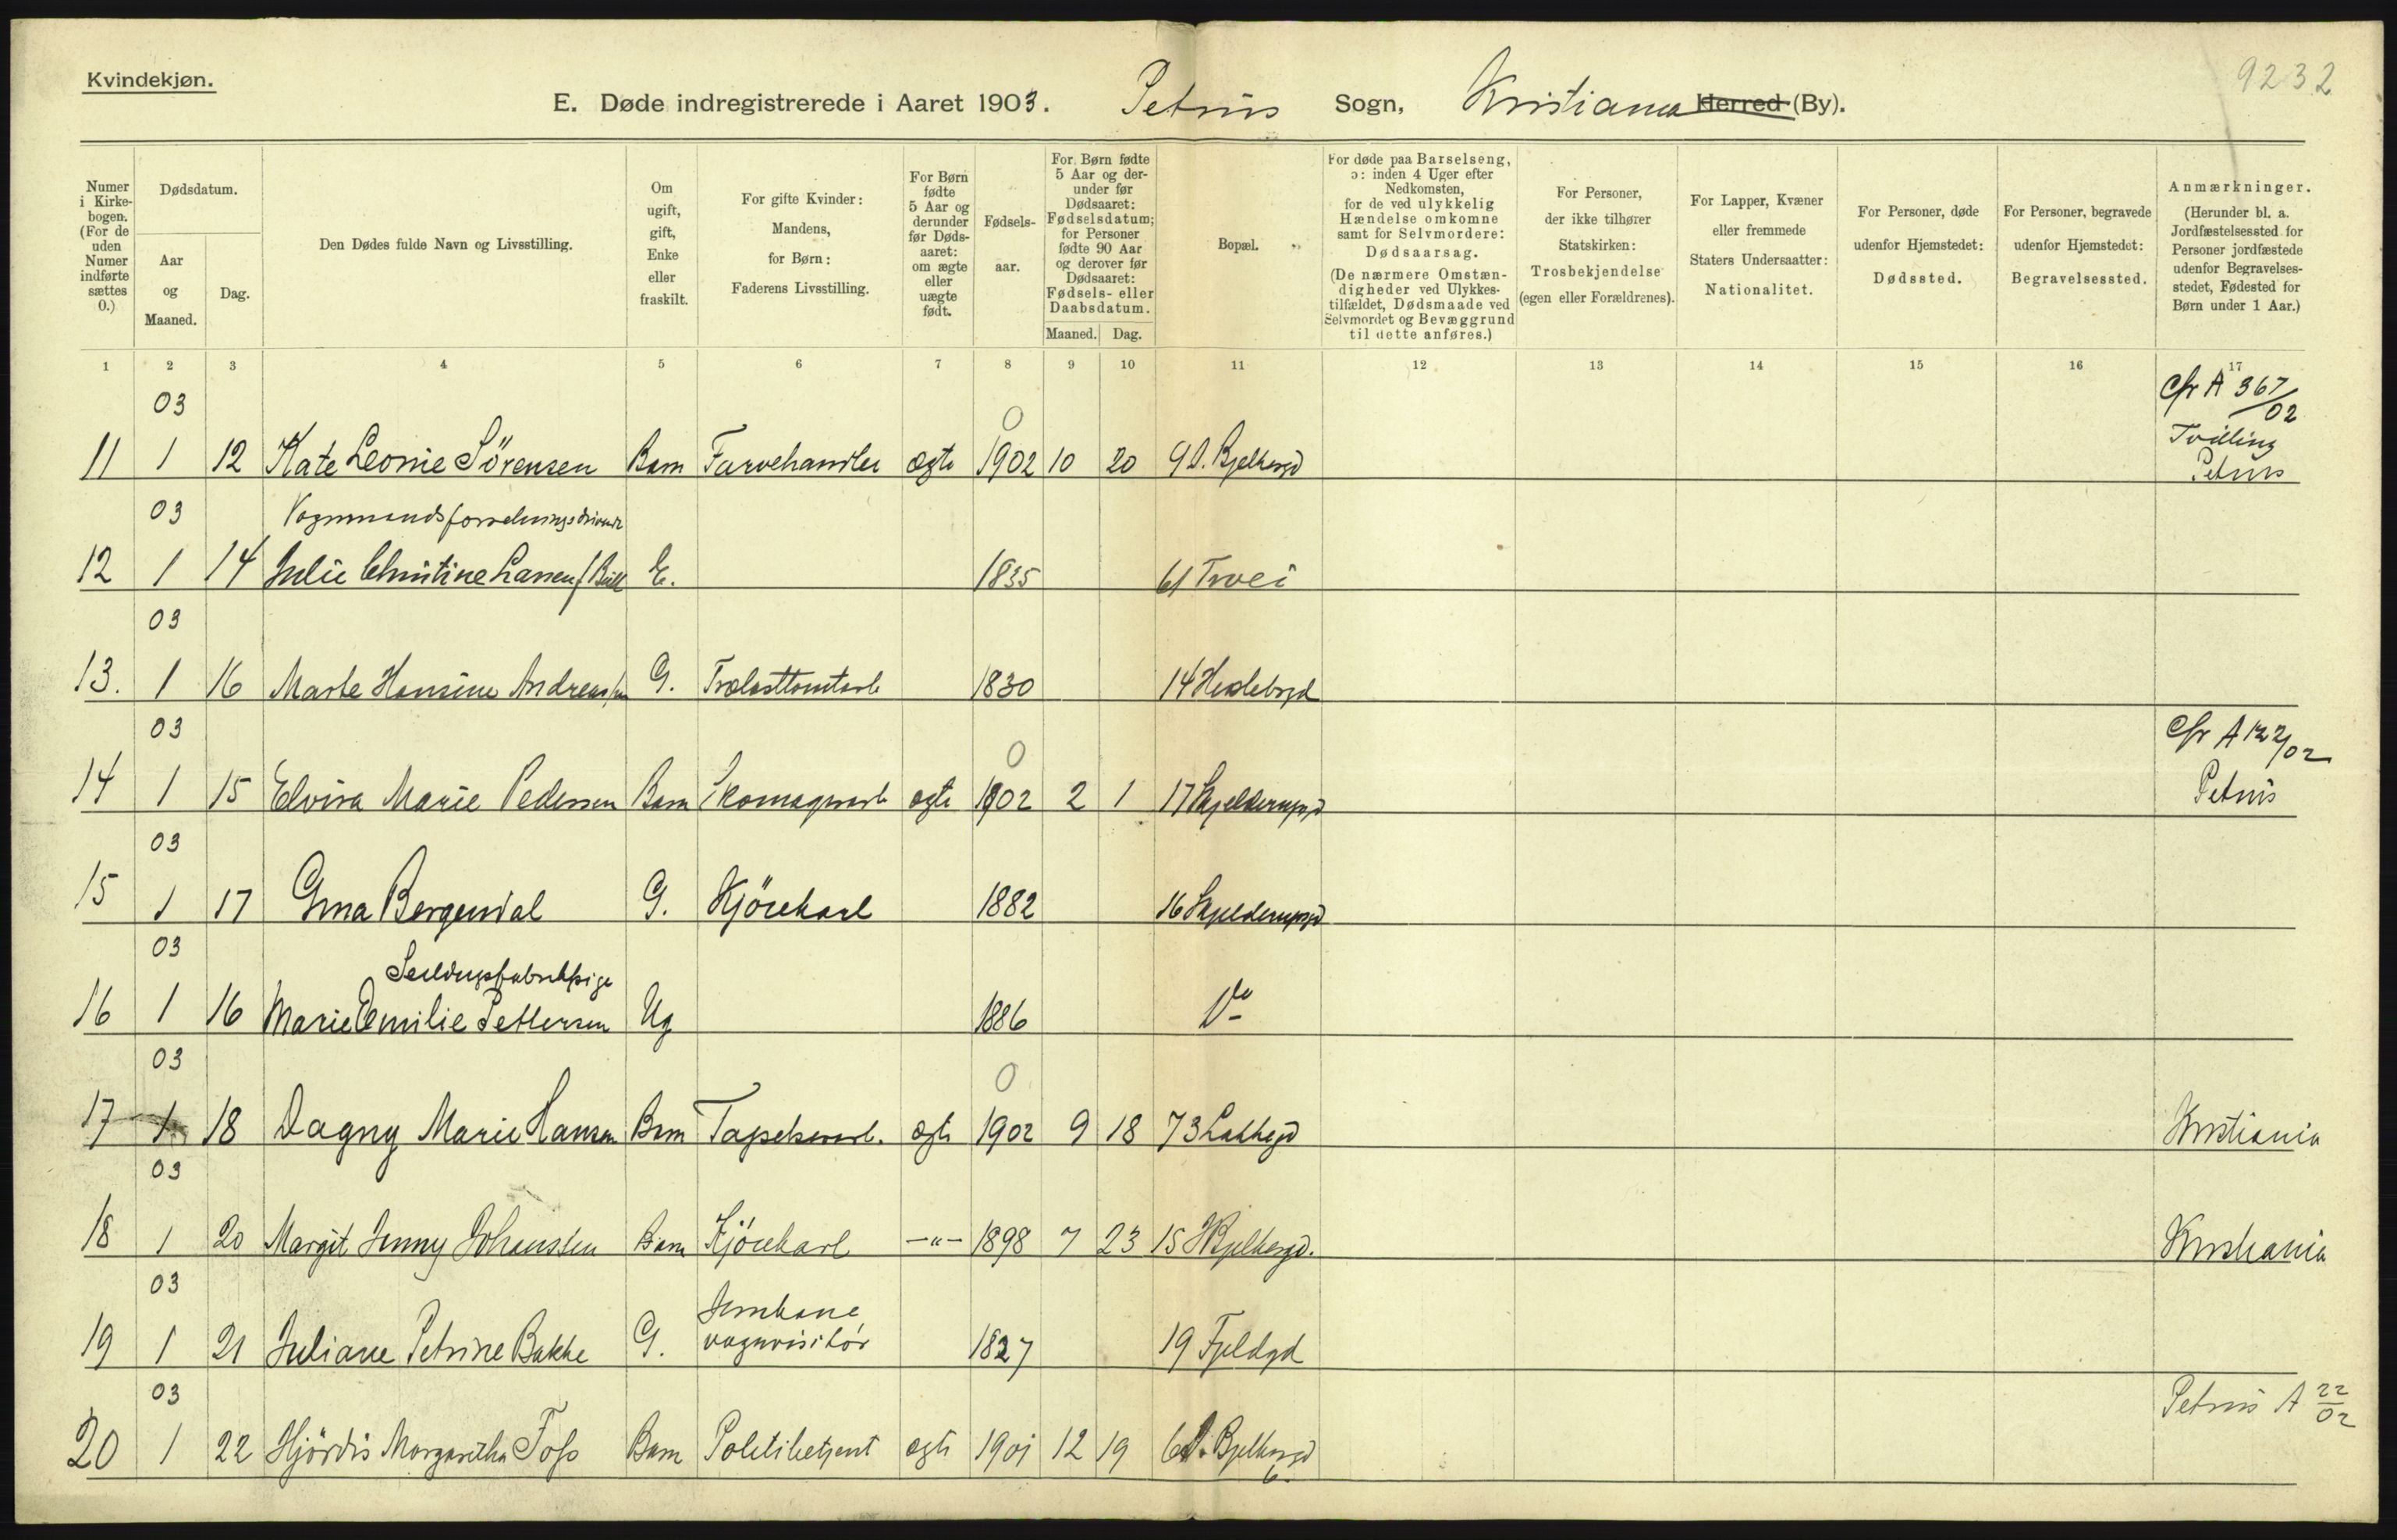 Kvindekjøn.
9232
E. Døde indregistrerede i Aaret 1903. Petrus Sogn, Kristiania Herred (By).
Numer i Kirkebogen. (For de uden Numer indførte sættes 0.)
Dødsdatum.
Aar og Maaned.
Dag.
Den Dødes fulde Navn og Livsstilling.
Om ugift, gift, Enke eller fraskilt.
For gifte Kvinder: Mandens, for Børn: Faderens Livsstilling.
For Børn fødte 5 Aar og derunder før Dødsaaret: om ægte eller uægte født.
Fødselsaar.
For Børn fødte 5 Aar og derunder før Dødsaaret: Fødselsdatum; for Personer fødte 90 Aar og derover før Dødsaaret: Fødsels- eller Daabsdatum.
Maaned. Dag.
Bopæl.
For døde paa Barselseng, ɔ: inden 4 Uger efter Nedkomsten, for de ved ulykkelig Hændelse omkomne samt for Selvmordere: Dødsaarsag. (De nærmere Omstændigheder ved Ulykkestilfældet, Dødsmaade ved Selvmordet og Bevæggrund til dette anføres.)
For Personer, der ikke tilhører Statskirken: Trosbekjendelse (egen eller Forældrenes).
For Lapper, Kvæner eller fremmede Staters Undersaatter: Nationalitet.
For Personer, døde udenfor Hjemstedet: Dødssted.
For Personer, begravede udenfor Hjemstedet: Begravelsessted.
Anmærkninger. (Herunder bl. a. Jordfæstelsessted for Personer jordfæstede udenfor Begravelsesstedet, Fødested for Børn under 1 Aar.)
1 2 3 4 5 6 7 8 9 10 11 12 13 14 15 16 17
03 0 Cfr A 367/02
Tvilling
11 1 12 Kate Leonie Sörensen Barn Farvehandler ægte 1902 10 20 9 N. Bjelkesgd Petrus
03 Vognmandsforretningsdrivende
12 1 14 Julie Christine Larsen f. Bull E. 1835 61 Trvei
03
13. 1 16 Marte Hansine Andreassen G. Trælasttomtarb 1830 14 Heslebsgd
03 0 Cfr A 122/02
14 1 15 Elvira Marie Pedersen Barn Skomagerarb ægte 1902 2 1 17 Skjelderupsgd Petrus
03
15 1 17 Gina Bergendal G. Kjörekarl 1882 16 Skjelderupsgd
03
16 1 16 Marie Emilie Pettersen Ug 1886 Do
03 0
17 1 18 Dagny Marie Hansen Barn Tapetserarb. ægte 1902 9 18 73 Lakkegd Kristiania
03
18 1 20 Margit Jenny Johanssen Barn Kjörekarl —"— 1898 7 23 15 N Bjelkesgd. Kristiania
03 Jernbane
19 1 21 Juliane Petrine Bakke G. vognvisitör 1827 19 Fjeldgd
03 Petrus A 22/02
20 1 22 Hjördis Margaretha Foss Barn Politibetjent ægte 1901 12 19 6 N. Bjelkesgd
6.